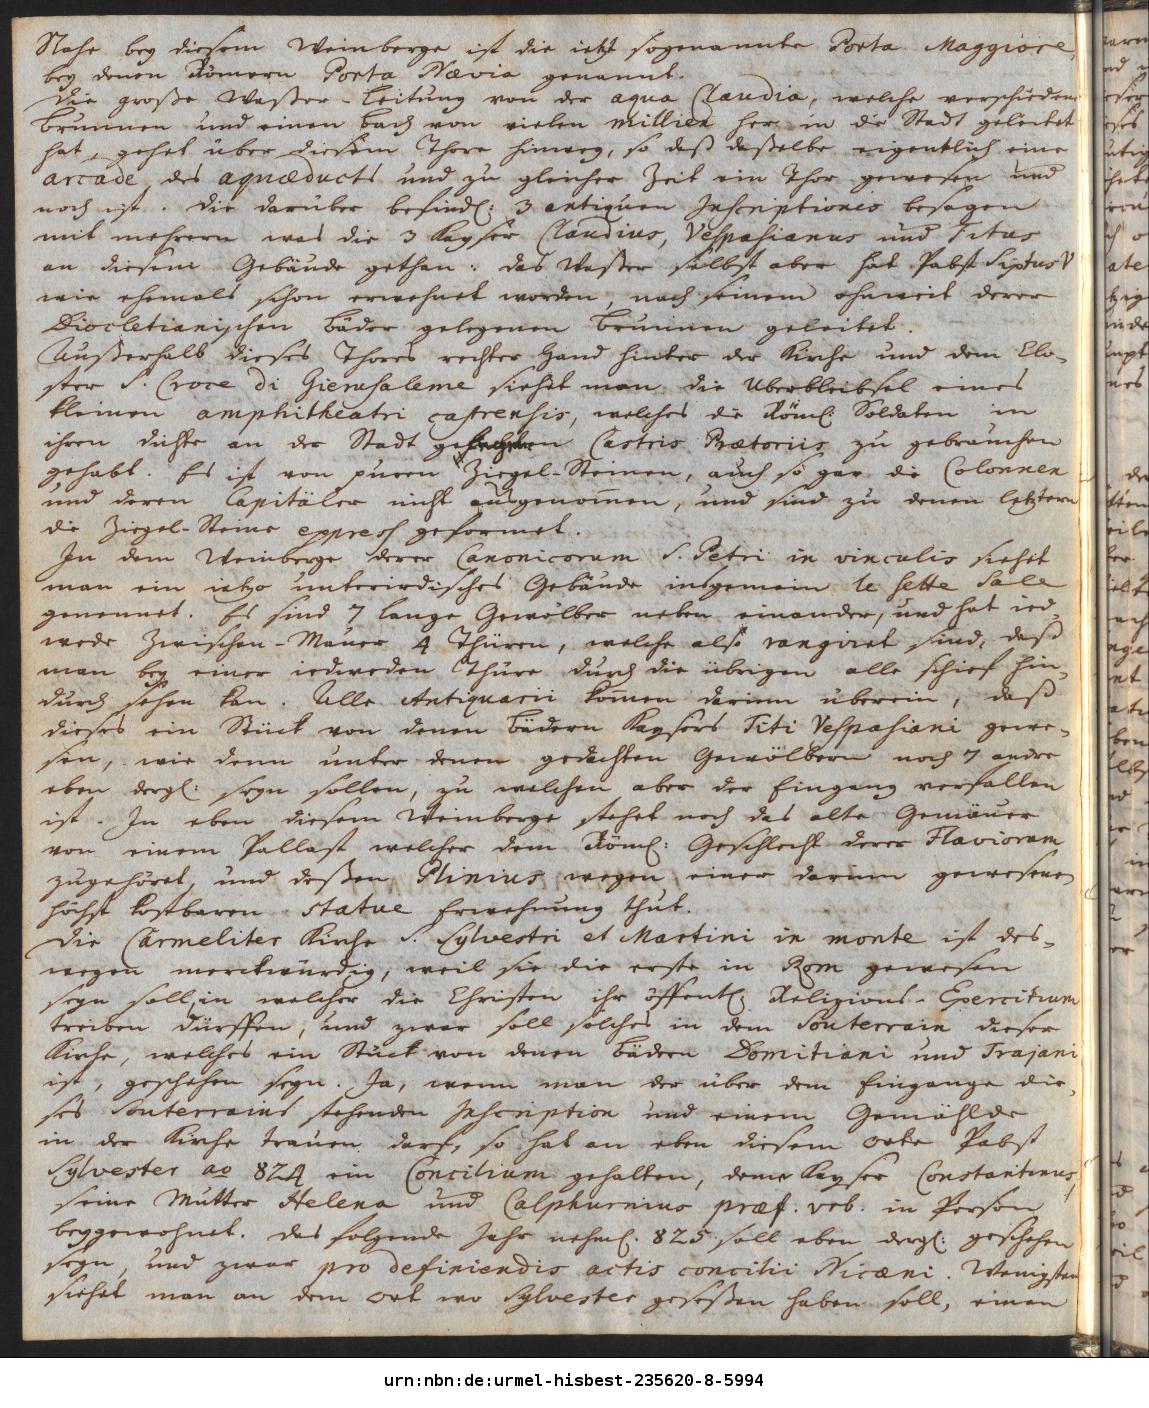 Nahe bey diesem Weinberge ist die ietzt sogenannte Porta Maggiore,
bey denen Römern Porta Nævia genannt.
Die große Waßer-Leitung von der aqua Claudia, welche verschiedene
Brunnen und einen Bach von vielen millien her in die Stadt geleitet
hat, gehet über diesem Thore hinweg, so daß daßelbe eigentlich eine
arcade des aquæducts und zu gleicher Zeit ein Thor gewesen und
noch ist. Die darüber befindl: 3 antiquen Inscriptiones besagen
mit mehrern was die 3 Kayser Claudius, Vespasianus und Titus
an diesem Gebäude gethan. Das Waßer selbst aber hat Pabst Sixtus V
wie ehemals schon erwehnet worden, nach seinem ohnweit derer
Diocletianischen Bäder gelegenen Brunnen geleitet.
Außerhalb dieses Thores rechter Hand hinter der Kirche und dem Clo-
ster S. Croce di Gierusaleme siehet man die Uberbleibsel eines
kleinen amphitheatri castrensis, welches die Röml: Soldaten in
ihren dichte an der Stadt Castris Prætoriis zu gebrauchen
gehabt. Es ist von puren Ziegel-Steinen, auch so gar die Colonnen
und deren Capitäler nicht ausgenom̄en, und sind zu denen letztern
die Ziegel-Steine express geformet.
In dem Weinberge derer Canonicorum S. Petri in vinculis siehet
man ein ietzo unterirdisches Gebäude insgemein le sette Sale
genennet. Es sind 7 lange Gewölber neben einander, und hat ied-
wede Zwischen-Mauer 4 Thüren, welche also rangiret sind, daß
man bey einer iedweden Thüre durch die übrigen alle schief hin-
durch sehen kan. Alle Antiquarii kom̄en darinn überein, daß
dieses ein Stück von denen Bädern Kaysers Titi Vespasiani gewe-
sen, wie denn unter denen gedachten Gewölbern noch 7 andre
eben dergl: seyn sollen, zu welchen aber der Eingang verfallen
ist. In eben diesem Weinberge stehet noch das alte Gemäuer
von einem Pallast welcher dem Röml: Geschlecht derer Flaviorum
zugehöret, und deßen Plinius wegen einer darinn gewesenen
höchst kostbaren statue Erwehnung thut.
Die Carmeliter Kirche S. Sylvestri et Martini in monte ist des-
wegen merckwürdig, weil sie die erste in Rom gewesen
seyn soll, in welcher die Christen ihr öffentl: Religions-Exercitium
treiben dürffen, und zwar soll solches in dem Souterrain dieser
Kirche, welches ein Stück von denen Bädern Domitiani und Trajani
ist, geschehen seyn. Ja, wenn man der über dem Eingange die-
ses Souterrains stehenden Inscription und einem Gemählde
in der Kirche trauen darf, so hat an eben diesem Orte Pabst
Sylvester ao 824 ein Concilium gehalten, deme Kayser Constantinus,
seine Mutter Helena und Calphurnius præf. vrb. in Person
beygewohnet. Das folgende Jahr nehml. 825 soll eben dergl: geschehen
seyn, und zwar pro definiendis actis concilii Nicæni. Wenigsten
siehet man an dem Ort wo Sylvester geseßen haben soll, einen
urn:nbn:de:urmel-hisbest-235620-8-5994